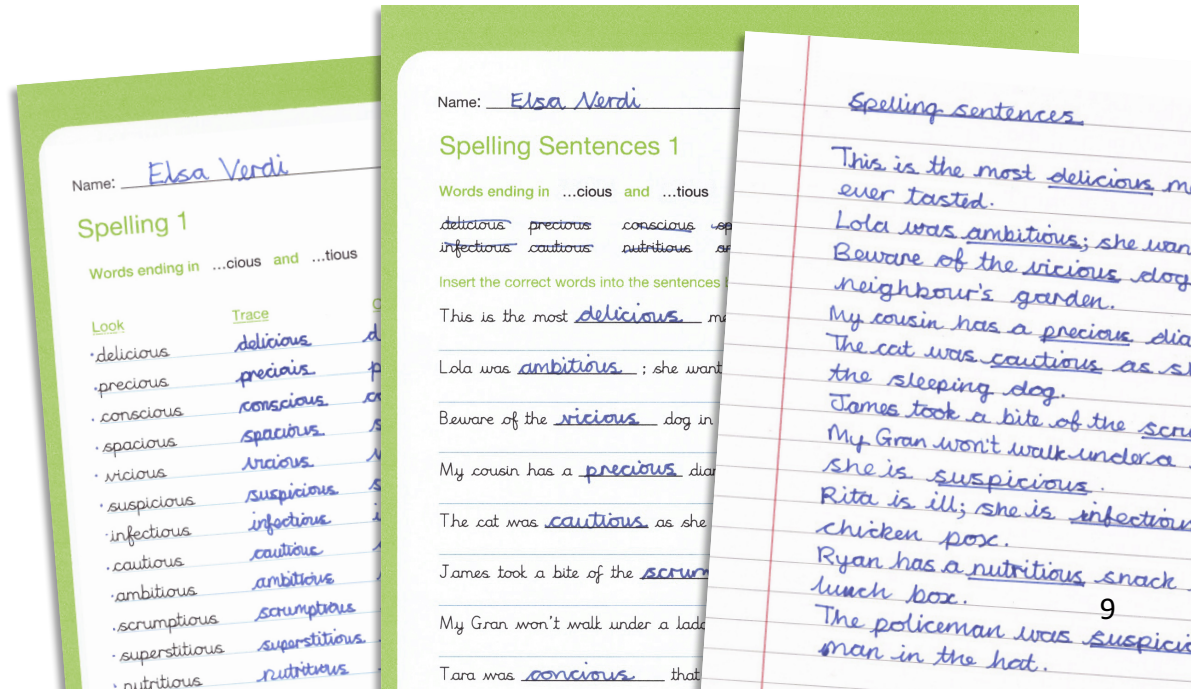 Name: Elsa Verdi
Spelling 1
Words ending in ...cious and ...tious
Look Trace
delicious delicious
precious precious
conscious conscious
spacious spacious
vicious vicious
suspicious suspicious
infectious infectious
cautious cautious
ambitious ambitious
scrumptious scrumptious
superstitious superstitious
nutritious nutritious
Name: Elsa Verdi
Spelling Sentences 1
Words ending in ...cious and ...tious
delicious precious conscious sp
infectious cautious nutritious
Insert the correct words into the sentences b
This is the most delicious me
Lola was ambitious ; she want
Beware of the vicious dog in
My cousin has a precious diam
The cat was cautious as she
James took a bite of the scrum
My Gran won't walk under a ladd
Tara was concious that
Spelling sentences
This is the most delicious m
ever tasted.
Lola was ambitious; she wan
Beware of the vicious dog
neighbour's garden.
My cousin has a precious dia
The cat was cautious as s
the sleeping dog.
James took a bite of the scru
My Gran won't walk under a
she is suspicious.
Rita is ill; she is infectious
chicken pox.
Ryan has a nutritious snack
lunch box.
The policeman was suspicio
man in the hat.
9